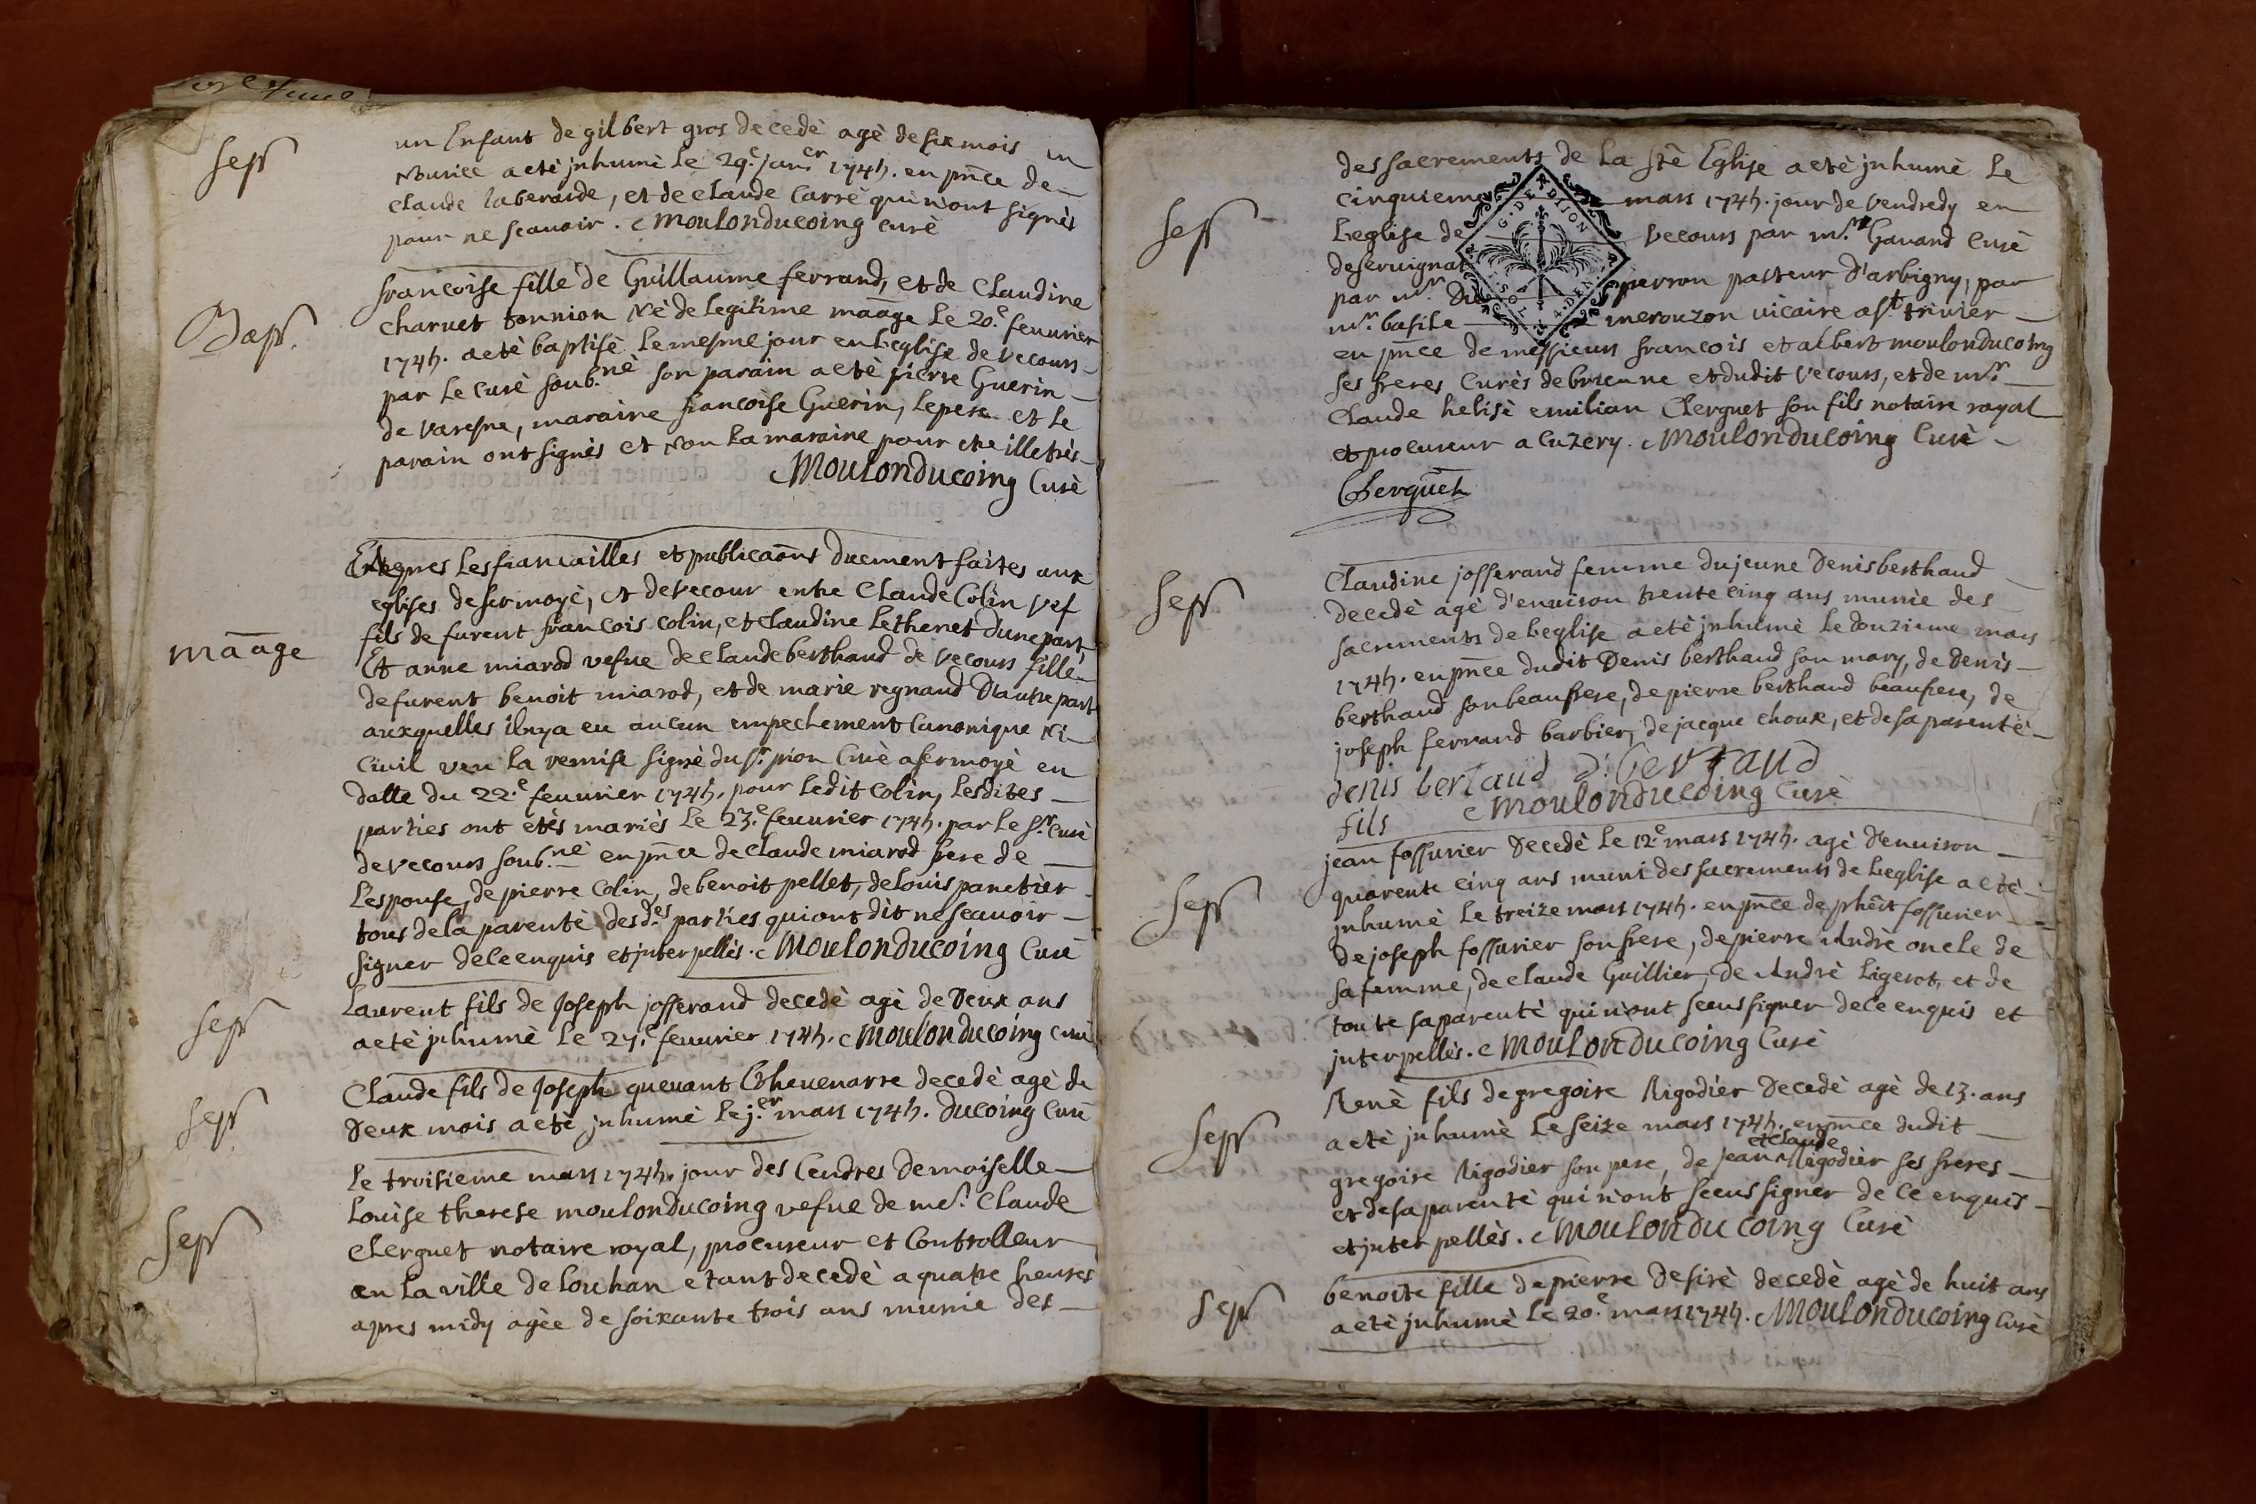 sep.
un Enfant de gilbert gros decedè agè de six mois en
Nourice a etè jnhumè le 29.e jan.er 1745. en pñce de
Claude laberarde, et de Claude Carrè qui n'ont signès
pour ne scavoir. Moulonducoing curè
Bap.
francoise fille de Guillaume ferrand, et de Claudine
Charnet tonnion Nè de legitime maãge le 20.e feuurier
1745. a etè baptisè le mesme jour en L'eglise de Vecours
par Le Curè soub.nè son parain a etè pierre Guerin
de Varesne, maraine francoise Guerin, Le pere et le
parain ont signès et Non La maraine pour etre illetrès
Moulonducoing Curè
Et apres Les fiancailles et publicaõns duement faites aux
eglises de sermoyè, et de Vecour entre Claude Colin Vef
maãge
fils de furent francois Colin, et Claudine Lethenet d'une part
Et anne miarod vefue de Claude berthaud de Vecours fille
de furent benoit miarod, et de marie regnaud D'autre part
auxquelles il n'y a eu aucun empechement Canonique Ni
Civil veu la remise signè du sr. pion Curè a sermoyè en
datte du 22.e feuurier 1745. pour Ledit Colin, Lesdites
parties ont etès mariès Le 23.e feuurier 1745. par Le sr. Curè
de Vecours soub.nè en pñce de Claude miarod frere de
L'espouse, de pierre Colin, de benoit pellet, de Louis panetier
tous de la parentè desd.es parties qui ont dit ne scavoir
signer de ce enquis et jnterpellès. Moulonducoing Curè
sep.
Laurent fils de Joseph josserand decedè agè de Deux ans
a etè jnhumè Le 27.e feuurier 1745. Moulonducoing Curè
sep.
Claude fils de Joseph quevant Chevenarre decedè agè de
Deux mois a etè jnhumè le j.er mars 1745. ducoing Curè
sep.
Le troisieme mars 1745. jour des Cendres Demoiselle
Louise therese moulonducoing vefue de me. Claude
Clerguet notaire royal, procureur et Controlleur
en la ville de Louhan etant decedè a quatre heures
apres midy agèe de soixante trois ans munie des
des sacrements de La ste Eglise a etè jnhumè Le
sep.
Cinquieme mars 1745. jour de Vendredy en
L'eglise de Vecours par mr. Gauard Curè
G. DE DIJON
de seruignat
par mr. Du pierron pasteur d'arbigny, par
mr. basile merouzon vicaire a st. trivier
en pñce de messieurs francois et albert moulonducoing
ses freres Curès de brienne et dudit Vecours, et de mr.
Claude helisè emilian Clerguet son fils notaire royal
et procureur a Cuzery. Moulonducoing Curè
Clerguet
sep.
Claudine josserand femme du jeune Denis berthaud
decedè agè d'enuiron trente cinq ans munie des
sacrements de L'eglise a etè jnhumè Le douzieme mars
1745. en pñce dudit Denis berthaud son mary, de Denis
berthaud son beaufrere, de pierre berthaud beaufrere, de
joseph ferrand barbier, de jacque choux, et de sa parentè
denis bertaud D. bertaud
fils Moulonducoing Curè
sep.
jean fossurier Decedè Le 12.e mars 1745. agè D'enuiron
quarente cinq ans muni des sacrements de L'eglise a etè
jnhumè Le treize mars 1745. en pñce de phẽrt fossurier
de joseph fossurier son frere, de pierre Andrè oncle de
sa femme, de Claude Guillier, de Andrè Ligerot, et de
toute sa parentè qui n'ont sceus signer de ce enquis et
jnterpellès. Moulonducoing Curè
sep.
Renè fils de gregoire Rigodier Decedè agè de 13. ans
a etè jnhumè Le seize mars 1745. en pñce dudit
et claude
gregoire Rigodier son pere, de jean Rigodier ses freres
et de sa parentè qui n'ont sceus signer de Ce enquis
et jnterpellès. Moulonducoing Curè
sep.
benoite fille de pierre Desirè decedè agè de huit ans
a etè jnhumè Le 20.e mars 1745. Moulonducoing Curè